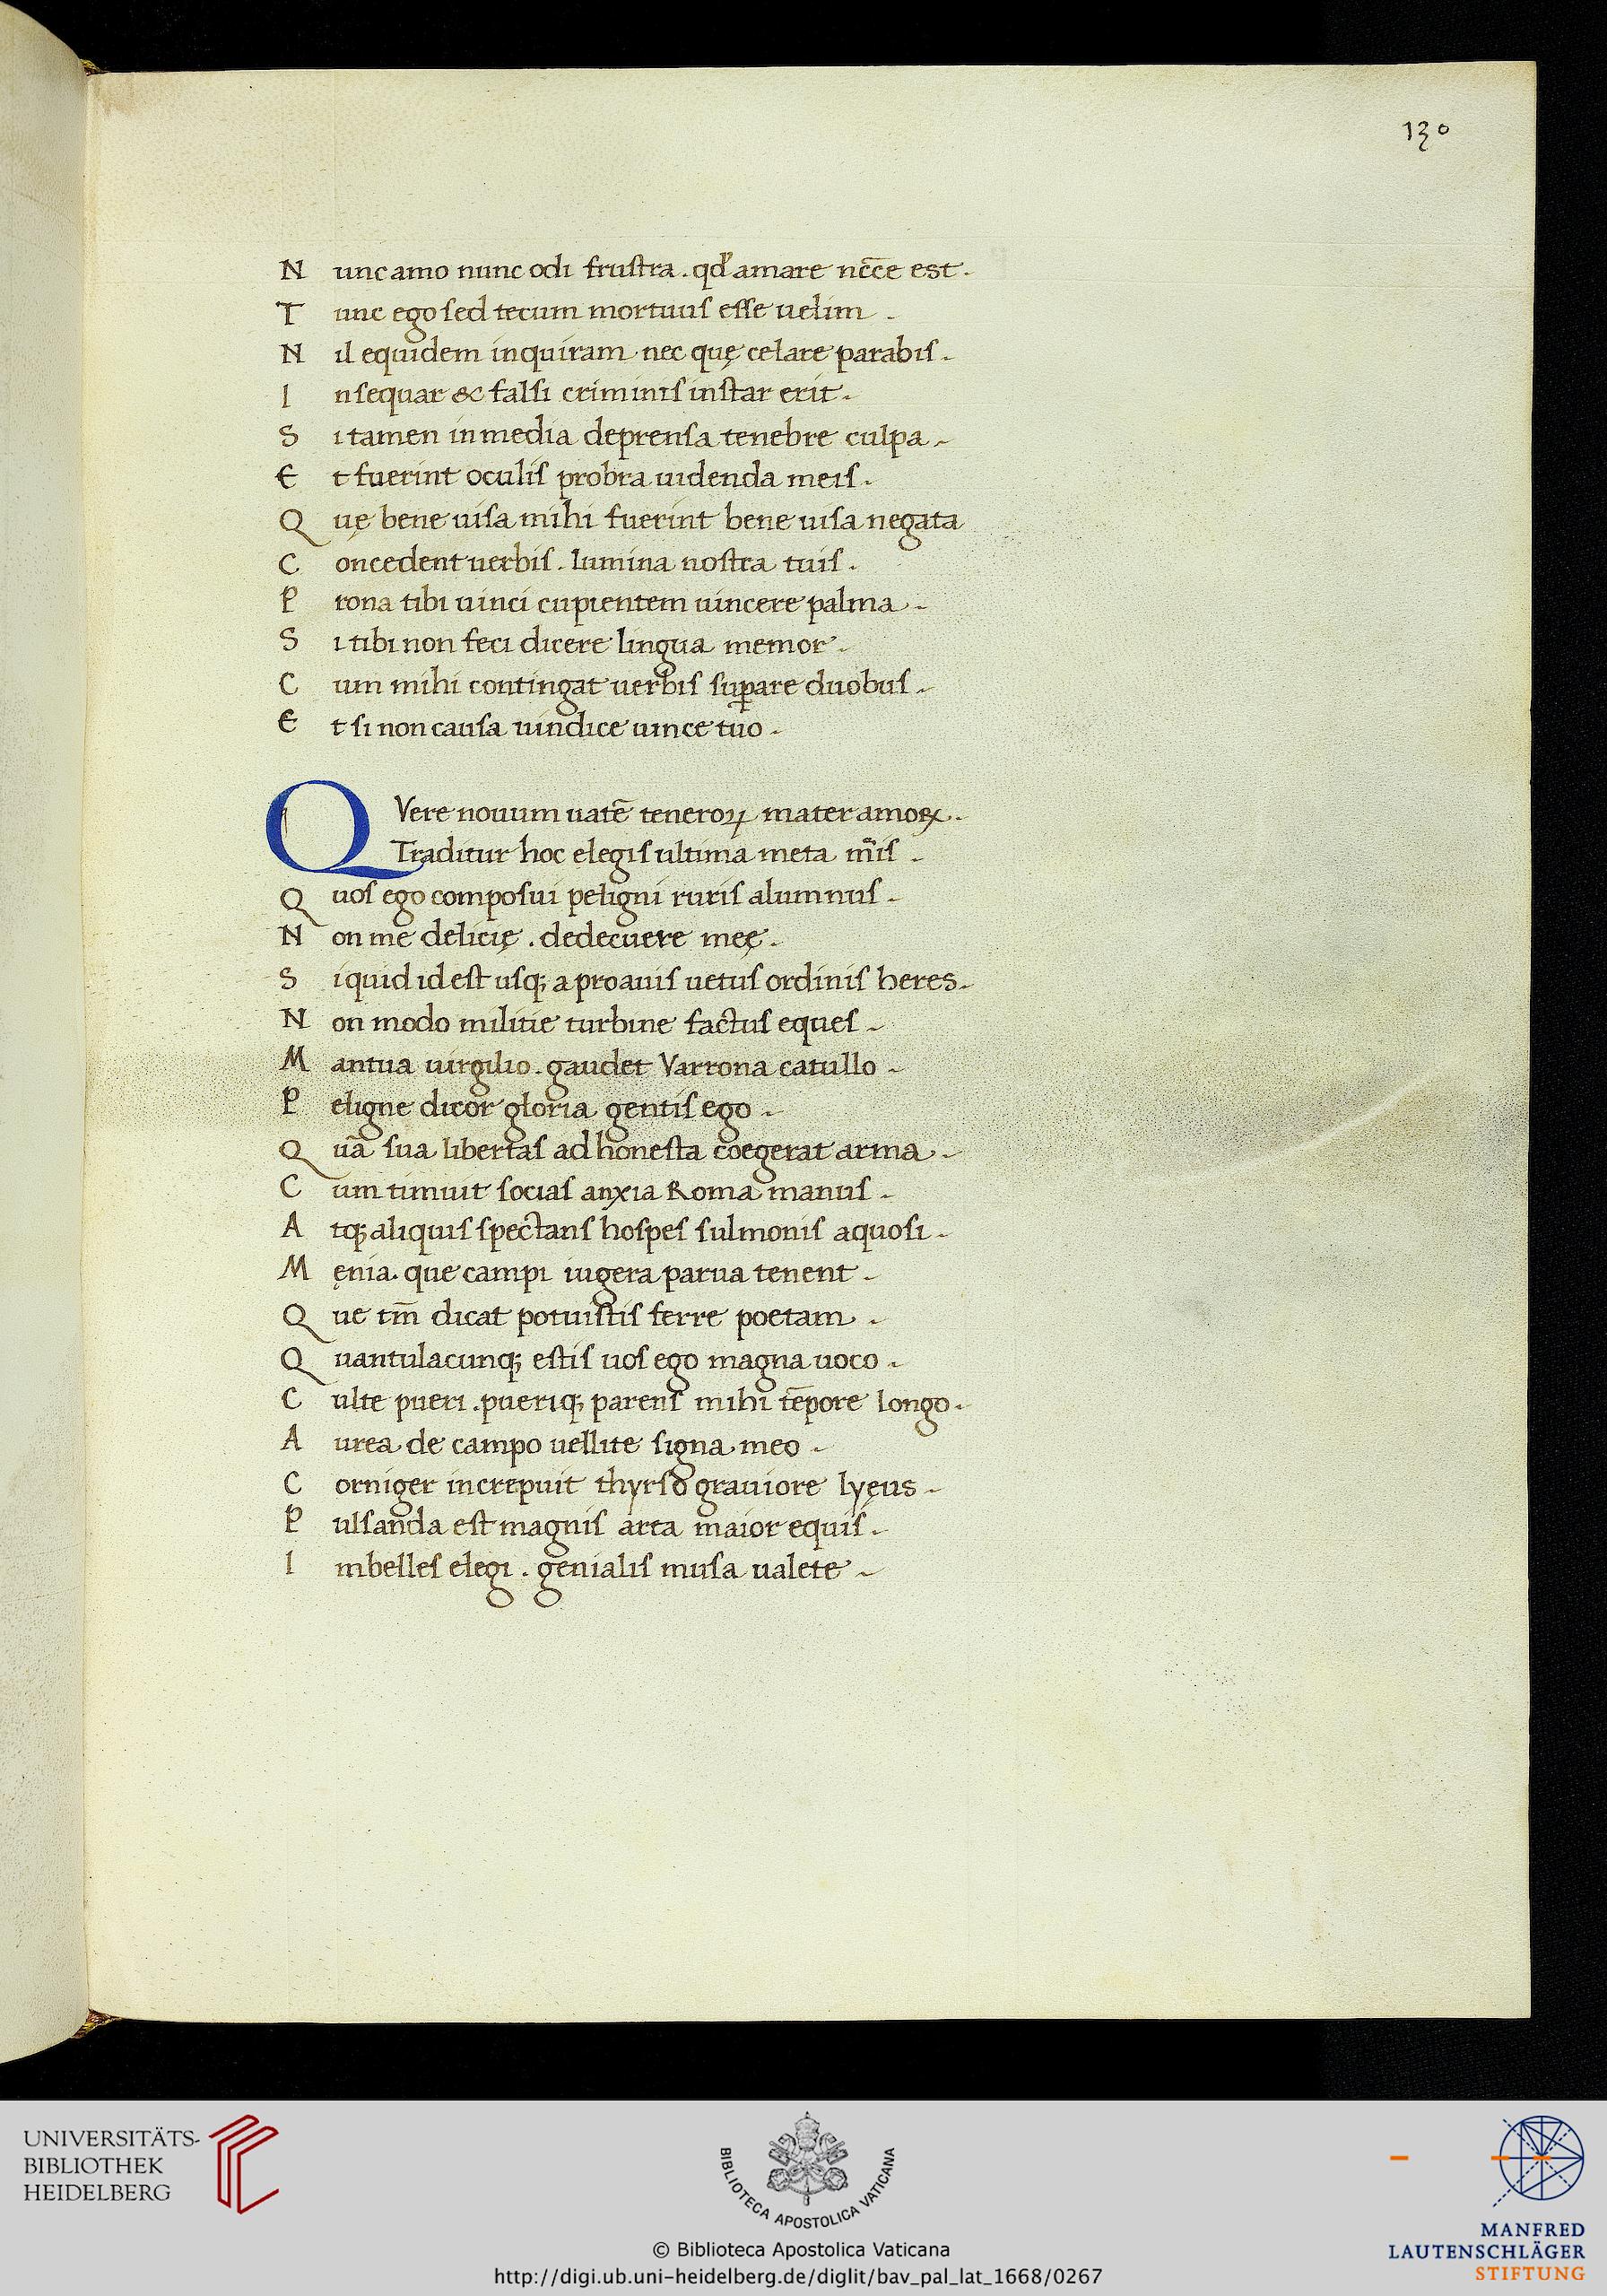 130
Nunc amo nunc odi frustra . qđ amare ncc̄e est .
Tunc ego sed tecum mortuus esse uelim .
Nil equidem inquiram nec quę celare parabis .
Insequar & falsi criminis instar erit .
Si tamen in media deprensa tenebre culpa .
Et fuerint oculis probra uidenda meis .
Quę bene uisa mihi fuerint bene uisa negata
Concedent uerbis . lumina nostra tuis .
Prona tibi uinci cupientem uincere palma .
Si tibi non feci dicere lingua memor .
Cum mihi contingat uerbis suꝑare duobus .
Et si non causa uindice uince tuo .
QVere nouum uatē teneroꝝ mater amoꝝ .
Traditur hoc elegis ultima meta mr̄is .
Quos ego composui peligni ruris alumnus .
Non me delicię . dedecuere meę .
Si quid id est usq; a proauis uetus ordinis heres .
Non modo militie turbine factus eques .
Mantua uirgilio . gaudet Varrona catullo .
Peligne dicor gloria gentis ego .
Quā sua libertas ad honesta coegerat arma .
Cum timuit socias anxia Roma manus .
Atq; aliquis spectans hospes sulmonis aquosi .
Męnia . que campi iugera parua tenent .
Que tm̄ dicat potuistis ferre poetam .
Quantulacunq; estis uos ego magna uoco .
Culte pueri . pueriq; parens mihi tēpore longo .
Aurea de campo uellite signa meo .
Corniger increpuit thyrso grauiore lyęus .
Pulsanda est magnis area maior equis .
Imbelles elegi . genialis musa ualete .
UNIVERSITÄTS-
BIBLIOTHEK
HEIDELBERG
BIBLIOTECA APOSTOLICA VATICANA
© Biblioteca Apostolica Vaticana
http://digi.ub.uni-heidelberg.de/diglit/bav_pal_lat_1668/0267
MANFRED
LAUTENSCHLÄGER
STIFTUNG